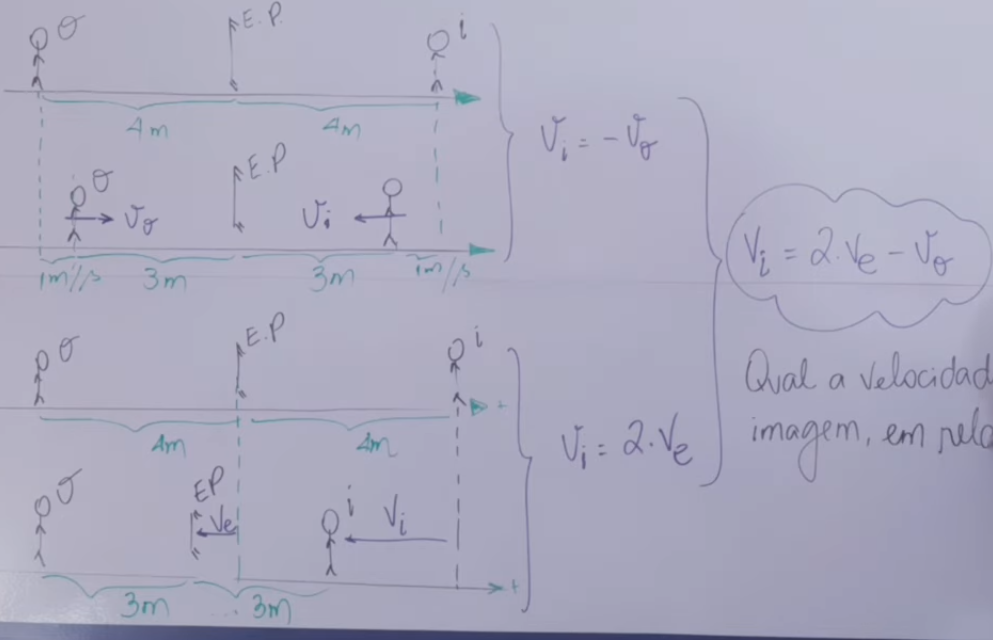 O E.P. i
4m 4m
O E.P
Vo Vi
1m/s 3m 3m 1m/s
Vi = -Vo
Vi = 2.Ve - Vo
O E.P i
4m 4m +
O EP Ve i Vi
3m 3m +
Vi = 2.Ve
Qual a velocidad
imagem, em rela